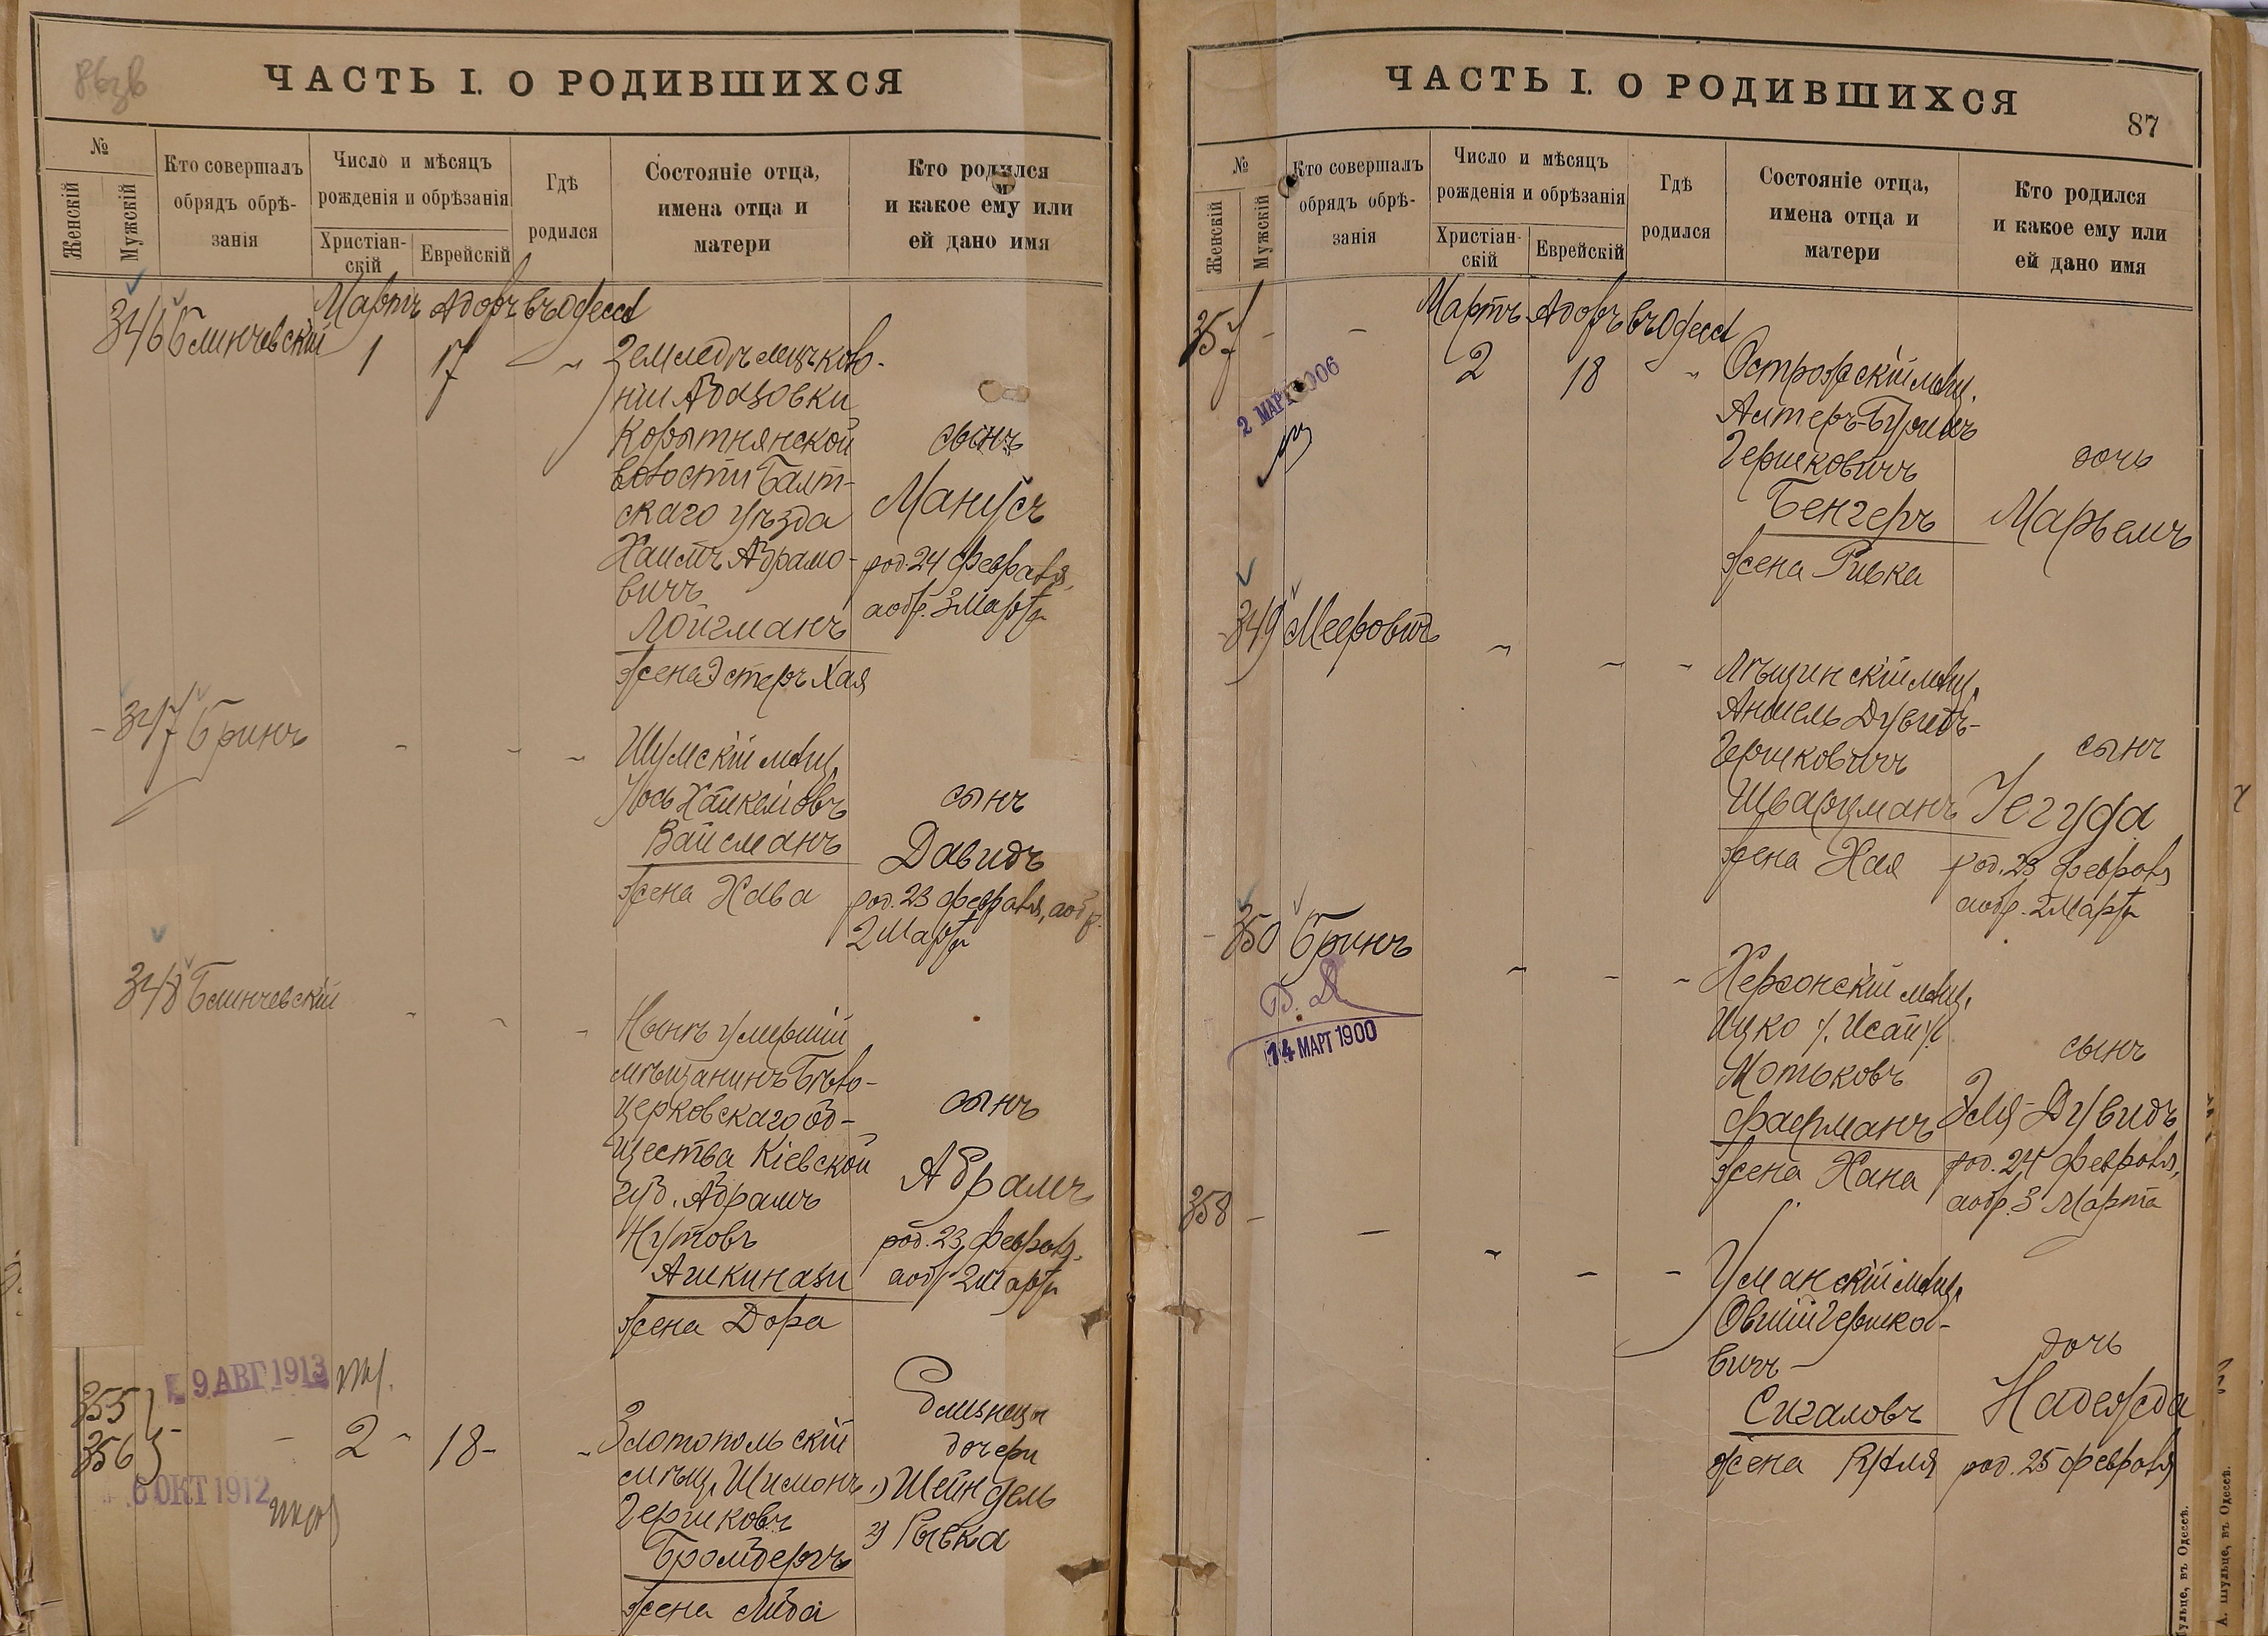 ЧАСТЬ I. О РОДИВШИХСЯ
№
Женскій
Мужскій
Кто совершалъ
обрядъ обрѣ-
занія
Число и мѣсяцъ
рожденія и обрѣзанія
Христіан-
скій
Еврейскій
Гдѣ
родился
Состояніе отца,
имена отца и
матери
Кто родился
и какое ему или
ей дано имя
Мартъ Адоръ въ Одессѣ
346 Блинчевскій 1 17 "
Земледѣлецъ коло-
ніи Абазовки
Корытнянской
волости Балт-
скаго уѣзда
Хаимъ Абрамо-
вичъ
Лойгманъ
жена Эстеръ Хая
сынъ
Манусъ
род. 24 февраля,
а обр. 3 Марта
347 Гринъ - - -
Шумскій мѣщ.
Іось Хаикелювъ
Вайсманъ
жена Хава
сынъ
Давидъ
род. 23 февраля, а обр.
2 Марта
348 Блинчевскій - - -
Нынѣ умершій
мѣщанинъ Бѣло-
церковскаго об-
щества Кіевской
губ. Абрамъ
Нутовъ
Ашкинази
жена Дора
сынъ
Абрамъ
род. 23 февраля,
а обр. 2 Марта
9 АВГ 1913
355
356 - 2 - 18 - -
6 ОКТ 1912
Златопольскій
мѣщ. Шимонъ
Гершковъ
Бромбергъ
жена Люба
близнецы
дочери
1) Шейндель
2) Рывка
ЧАСТЬ I. О РОДИВШИХСЯ
87
№
Женскій
Мужскій
Кто совершалъ
обрядъ обрѣ-
занія
Число и мѣсяцъ
рожденія и обрѣзанія
Христіан-
скій
Еврейскій
Гдѣ
родился
Состояніе отца,
имена отца и
матери
Кто родился
и какое ему или
ей дано имя
Мартъ Адоръ въ Одессѣ
357 - - 2 18 "
2 МАРТ 1906
Острожскій мѣщ.
Алтеръ-Бурихъ
Гершковичъ
Бенгеръ
жена Ривка
дочь
Марьемъ
349 Мееровичъ - - -
Лѣщинскій мѣщ.
Аншель Дувидъ-
Гершковичъ
Шварцманъ
жена Хая
сынъ
Іегуда
род. 23 февраля
а обр. 2 Марта
350 Гринъ - - -
14 МАРТ 1900
Херсонскій мѣщ.
Ицко /. Исай ./
Мотьковъ
Фаерманъ
жена Хана
сынъ
Эля-Дувидъ
род. 24 февраля,
а обр. 3 Марта
358 - - - - -
Уманскій мѣщ.
Овшій Гершко-
вичъ
Сигаловъ
жена Рухля
дочь
Надежда
род. 25 февраля
А. Шульце, въ Одессѣ.